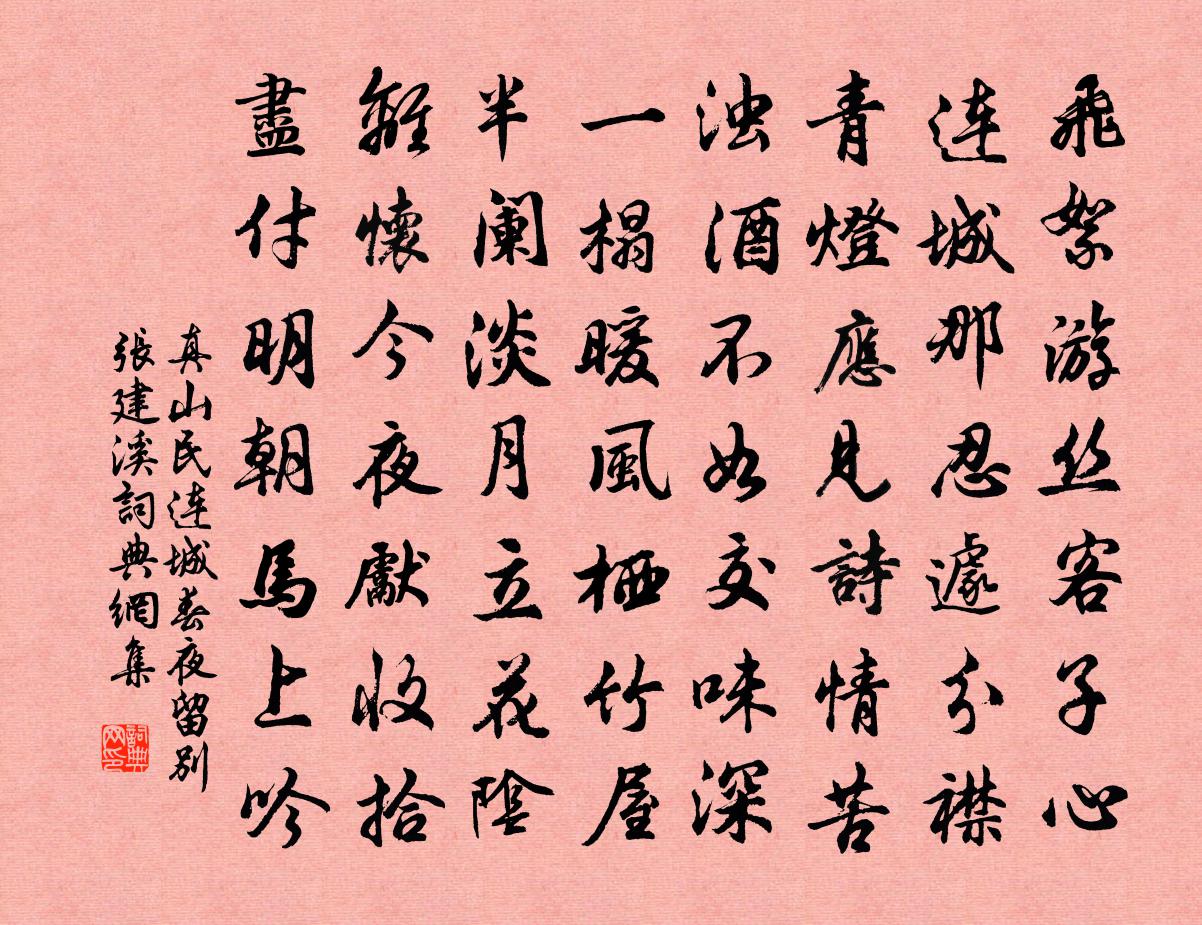 飛絮游丝客子心
连城那忍遽分襟
青燈應見詩情苦
浊酒不如交味深
一榻暖風栖竹屋
半阑淡月立花陰
離懷今夜獻收拾
盡付明朝馬上吟
真山民连城春夜留别
張建溪詞典網集
詞典网印